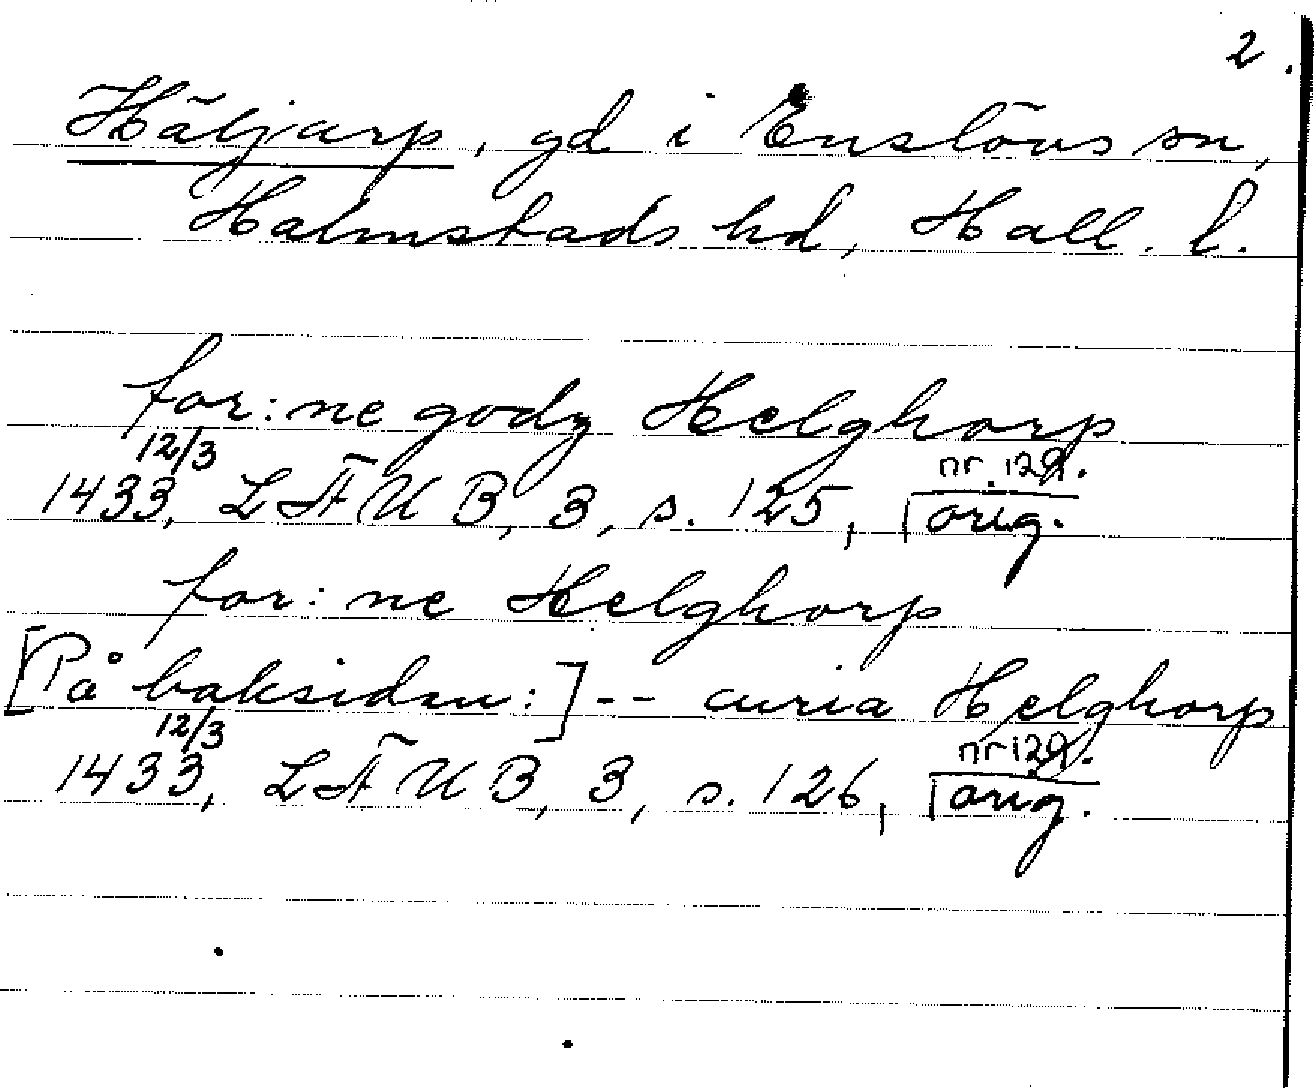 2.
Häljarp, gd i Enslövs sn,
Halmstads hd, Hall. l.
for:ne godz Helghorp
12/3 nr 122.
1433, LÄUB, 3, s. 125, orig.
for:ne Helghorp
[På baksidan:] -- curia Helghorp
12/3 nr 122.
1433, LÄUB, 3, s. 126, orig.